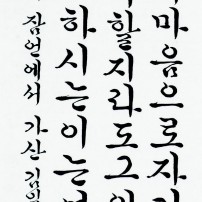 마음으로자
할지라도그
하시는이는
잠언에서 가산 김